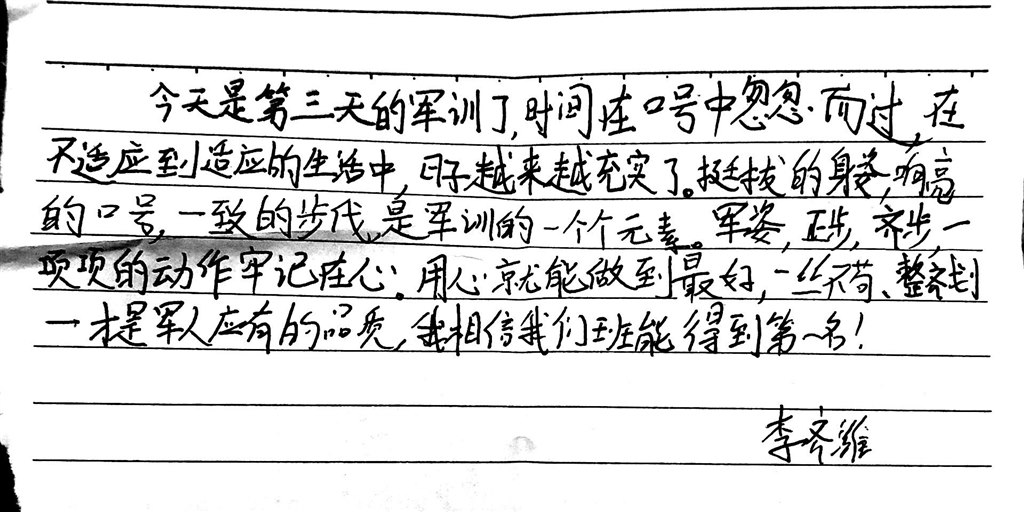 今天是第三天的军训了,时间在口号中忽忽而过,在
不适应到适应的生活中,日子越来越充实了。挺拔的身姿,响亮
的口号,一致的步伐,是军训的一个个元素。军姿,正步,齐步,一
项项的动作牢记在心。用心就能做到最好,一丝不苟、整齐划
一才是军人应有的品质,我相信我们班能得到第一名!
李齐潍